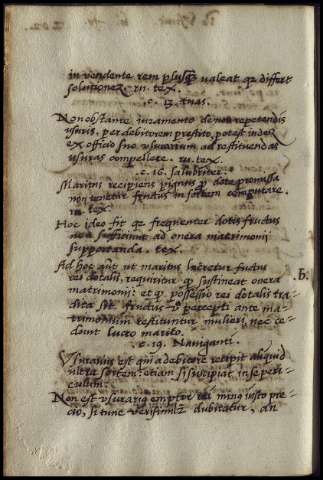 in vendente rem plusq̃ ualeat qz differt
solutionez. ru. tex.
c. 13. tuas.
Non obstante iuramento de non repetendis
usuris, per debitorem prestito, potest iudex
ex officio suo usurarium ad restituendas
usuras compellere. ru. tex.
c. 16. salubriter.
Maritus recipiens pignus p̱ dote promissa
non tenetur fructus in sortem computare.
ru. tex.
Hoc ideo fit qz frequenter dotis fructus
non sufficiunt ad onera matrimonij
supportanda. tex.
Ad hoc aũt ut maritus lucretur fructus
rei dotalis, requiritur q̱ sustineat onera
matrimonij: et q̱ possessio rei dotalis tra-
dita sit. fructus percepti ante ma-
trimonium restituuntur mulieri, nec ce-
dunt lucro mariti.
.b.
c. 19. Nauiganti.
Usurarius est qui a debitore recipit aliquid
ultra sortem: etiam si suscipiat in se peri-
culum.
Non est usurarius emptor rei minus iusto pre-
cio, si tunc verisimiliter dubitatur, an